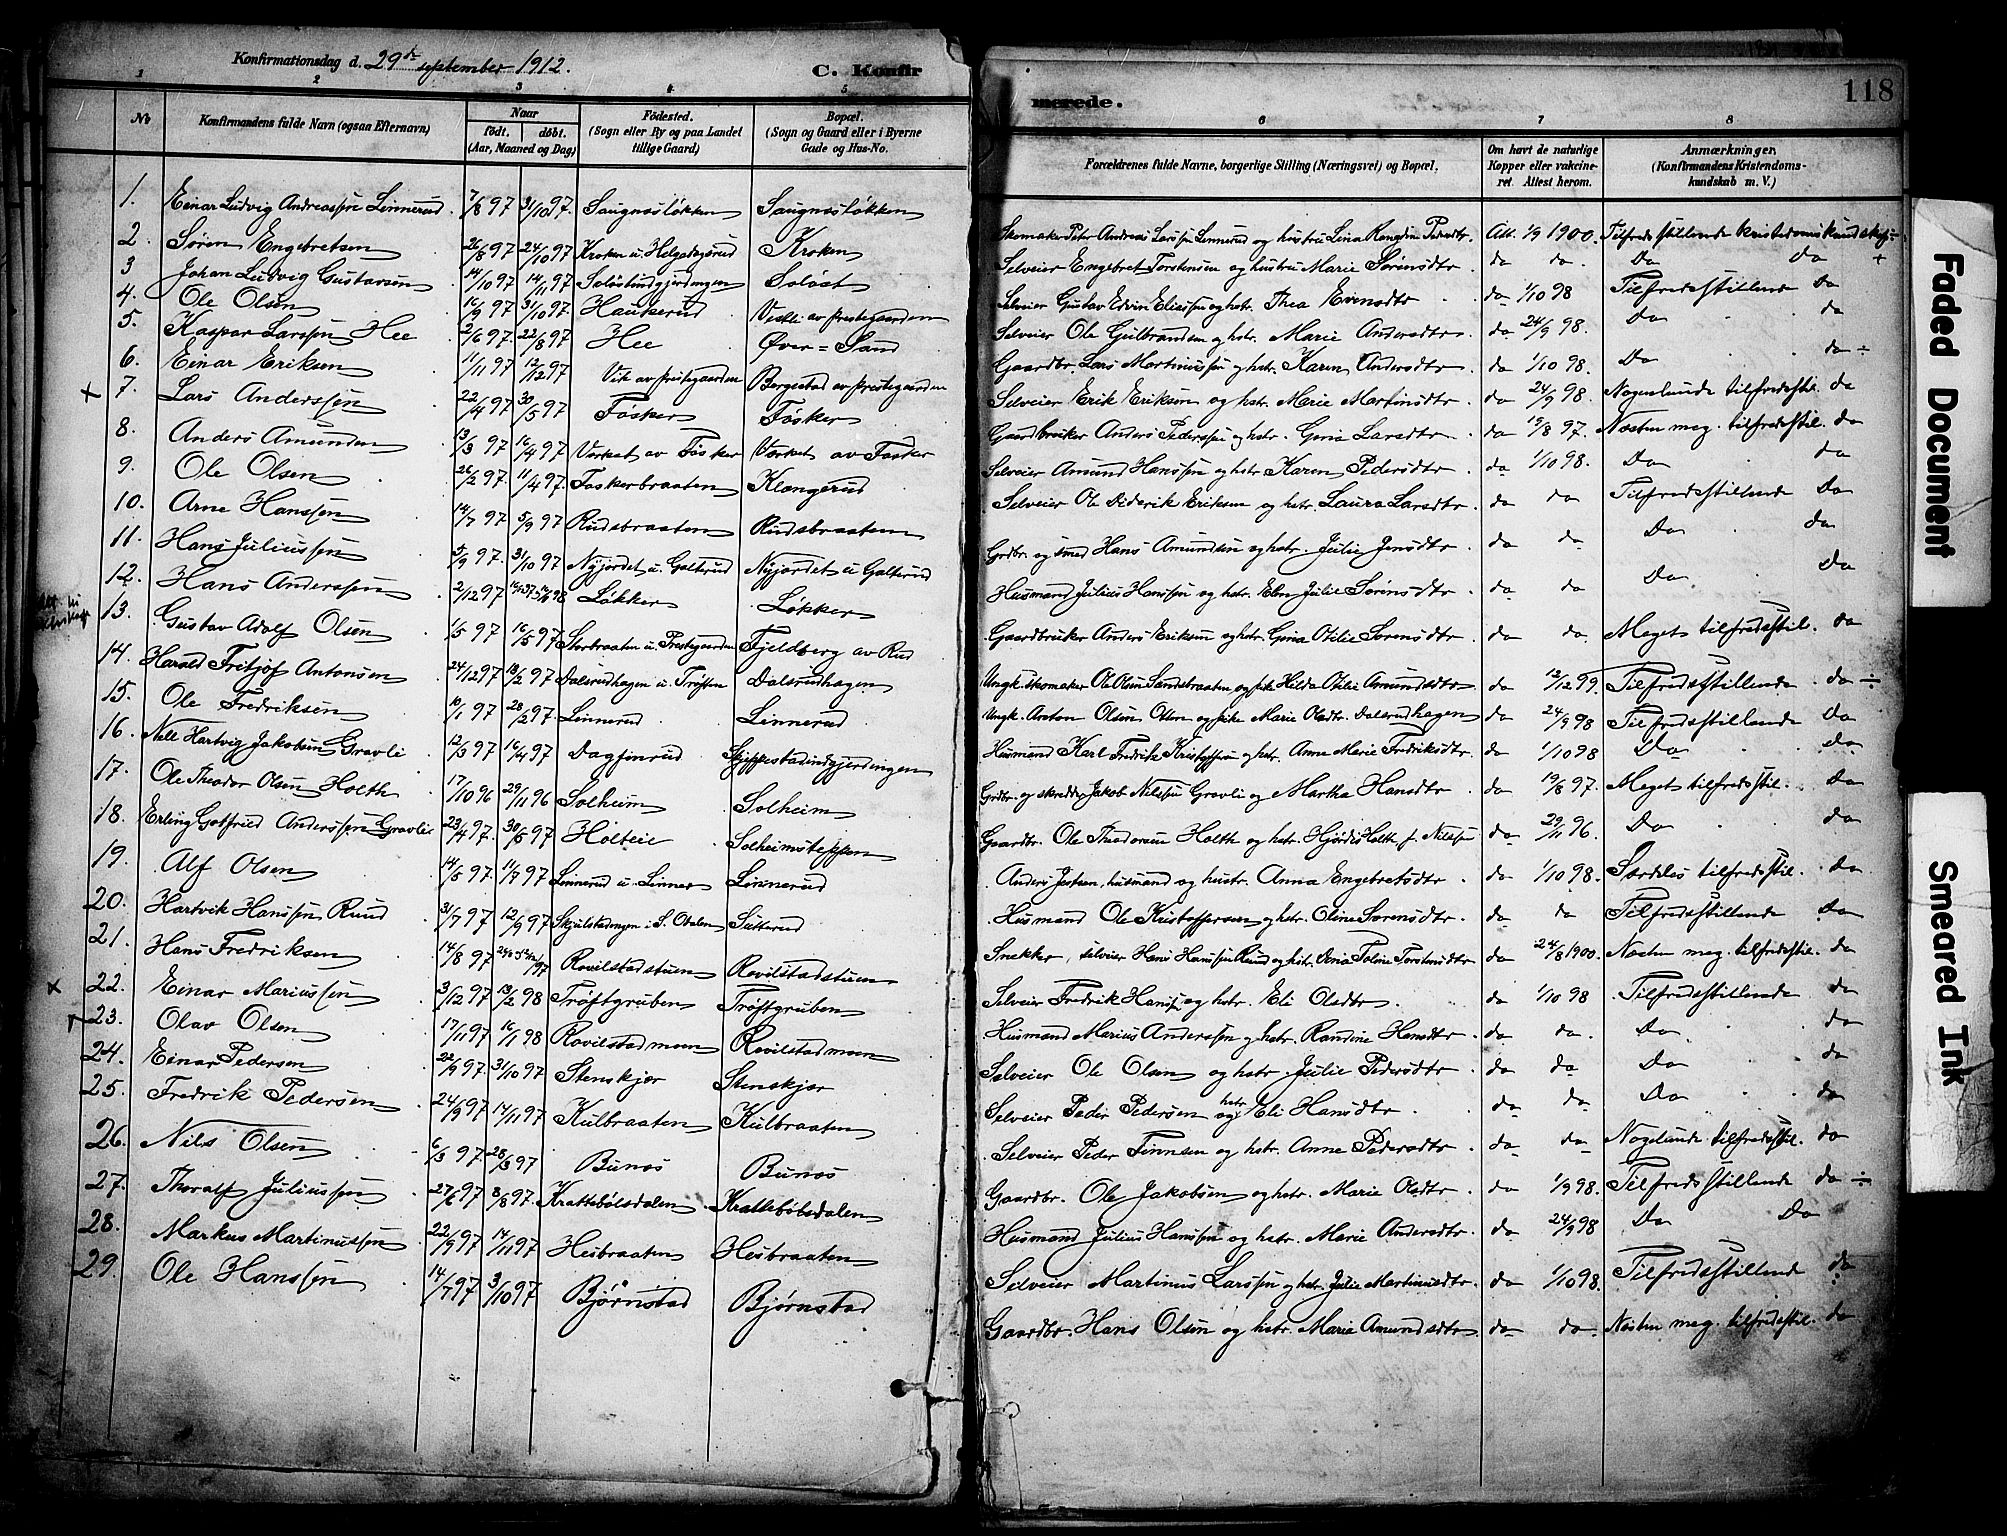 Konfirmationsdag d. 29de september 1912. C. Konfirmerede. 118
1 2 3 4 5 6 7 8
No Konfirmandens fulde Navn (ogsaa Efternavn) Naar født. døbt. (Aar, Maaned og Dag) Fødested. (Sogn eller By og paa Landet tillige Gaard) Bopæl. (Sogn og Gaard eller i Byerne Gade og Hus-No. Forældrenes fulde Navne, borgerlige Stilling (Næringsvei) og Bopæl. Om havt de naturlige Kopper eller vakcineret. Attest herom. Anmærkninger. (Konfirmandens Kristendomskundskab m. V.)
1. Einar Ludvig Andreassen Linnerud 7/8 97 31/10 97. Saugnæsløkken Saugnæsløkken Skomaker Peter Andreas Larssen Linnerud og hustru Lina Pedersdtr. Att. 1/9 1900. Tilfredsstillende kristendomskundskap
2. Søren Engebretsen 26/8 97 24/10 97 Kroken u. Helgedagsrud Kroken Selveier Engebret Torstensen og hustru Marie Sørensdtr. da da. Da da +
3 Johan Ludvig Gustavsen 14/10 97 14/11 97 Soløstindgjerdingen Soløst Selveier Gustav Edvin Eliassen og hstr. Thea Evensdtr da 1/10 98 Tilfredsstillende Da
4. Ole Olsen 16/9 97 31/10 97 Haukerud Vestli av prestegaarden Selveier Ole Gulbrandsen og hstr. Marie Andersdtr da 24/9 98. Da da
5. Kaspar Larssen Hee 2/6 97. 22/8 97 Hee Øver=Sand Gaardbr. Lars Martiniussen og hstr. Karen Andersdtr da 1/10 98. Da da ÷
6. Einar Eriksen 11/11 97 12/12 97 Vik av prestegaarden Bergestad av prestegaarden Selveier Erik Eriksen og hstr. Marie Martinsdtr da 24/9 98. Nogenlunde tilfredsstil. da
x 7. Lars Anderssen 22/4 97 30/5 97 Fosker Fosker Gaardbruker Anders Pederssen og hstr. Gina Larsdtr da 19/8 97. Næsten meg. tilfredsstil. da
8. Anders Amundsen 13/3 97 16/4 97 Vorket av Fosker Vorket av Fosker Selveier Amund Hanssen og hstr. Karen Pedersdtr da 1/10 98. Da da
9. Ole Olsen 26/2 97. 11/4 97 Foskerbraaten Klængerud Selveier Ole Diderik Eriksen og hstr. Laura Larsdtr da da Tilfredsstillende Da
10. Arne Hanssen 14/7 97 5/9 97 Rudsbraaten Rudsbraaten Grdbr. og smed Hans Amundsen og hstr. Julie Jensdtr da da. Da da
11. Hans Juliussen 5/9 97. 31/10 97 Nyjordet u. Galterud Nyjordet u Galterud Husmand Julius Hanssen og hstr. Elen Julie Sørensdtr da da Da Da
12. Hans Anderssen 2/12 97 Løkker Løkker Gaardbruker Anders Eriksen og hstr. Gina Otilie Sørensdtr. da da. Meget tilfredsstil. da
13. Gustav Adolf Olsen 1/5 97 16/5 97 Storbraaten u. Prestegaarden Fjeldberg av Rud Ungk. skomaker Ole Olsen Sandsbraaten og pike Hilda Otilie Amundsdtr da 12/12 99. Tilfredsstillende da ÷
14. Harald Fritjof Antonsen 24/12 97 13/2 97 Dalsrudhagen u. Trøften Dalsrudhagen Ungk. Anton Olsen Olsen og pike Marie Olsdtr. Dalsrudhagen da 24/9 98 Tilfredsstillende Da
15. Ole Fredriksen 10/1 97 28/2 97 Linnerud Linnerud Husmand Karl Fredrik Kristoffersen og hstr. Anne Marie Fredriksdtr. da 1/10 98 Da da
16. Nell Hartvig Jakobsen Gravli 12/3 97 16/4 97 Dagfinrud Skjeppestadindgjerdingen Grdbr. og skrædder Jakob Nilssen Gravli og Martha Hansdtr. da 19/8 97. Meget tilfredsstil. Da
17. Ole Theodor Olsen Holth 17/10 96 29/11 96 Solheim Solheim Gaardbr. Ole Theodorsen Holth og hstr. Hjørdis Holth f. Nilssen da 29/11 96. Da da
18. Erling Gotfried Anderssen Gravlie 23/4 97. 30/5 97 Holteie Solheimsteppen Anders Jensen, husmand og hustr. Anna Engebretsdtr da 1/10 98. Særdeles tilfredsstil. da
19. Alf Olsen 14/5 97. 11/7 97 Linnerud u. Linnes Linnerud Husmand Ole Kristoffersen og hstr. Oline Sørensdtr. da da Tilfredsstillende Da
20. Hartvik Hanssen Ruud 31/7 97 12/9 97 Skjulstadengen i S. Odalen Sætterud Snekker, selveier Hans Hanssen Ruud og hstr. Torstensdtr da 24/8 1900. Næsten meg. tilfredsstil. da
21. Hans Fredriksen 14/8 97 Rovilstadstuen Rovilstadstuen Selveier Fredrik Hanss. og hstr. Eli Olsdtr da 1/10 98 Tilfredsstillende da
x 22. Einar Mariussen 3/12 97 13/2 98 Trøftgruben Trøftgruben Husmand Marius Anderssen og hstr. Randine Hansdtr da da. Da da
23. Olav Olsen 17/11 97 16/1 98 Rovilstadmoen Rovilstadmoen Selveier Ole Olsen og hstr. Julie Pedersdtr da da Da da
24. Einar Pedersen 22/9 97. 31/10 97 Stenskjor Stenskjor Selveier Peder Pedersen og hstr. Eli Hansdtr da da. Da da
25. Fredrik Pedersen 24/9 97 14/11 97 Kulbraaten Kulbraaten Selveier Peder Finnsen og hstr. Anne Pedersdtr da da. Nogelunde tilfredsstil. da
26. Nils Olsen 6/3 97. 28/3 97 Bunæs Bunæs Gaardbr. Ole Jakobsen og hstr. Marie Olsdtr. da 1/9 98. Tilfredsstillende da ÷
27. Thoralf Juliussen 27/6 97 8/8 97. Krattebølsdalen Krattebølsdalen Husmand Julius Hanssen og hstr. Marie Andersdtr. da 24/9 98 Da Da
28. Markus Martinussen 22/9 97 14/11 97 Hesbraaten Hesbraaten Selveier Martinus Larssen og hstr. Julie Martinusdtr. da 1/10 98. Tilfredsstillende da
29. Ole Hanssen 14/7 97 3/10 97 Bjørnstad Bjørnstad Gaardbr. Hans Olsen og hstr. Marie Amundsdtr da da. Næsten meg. tilfredsstil. da
Faded Document
Smeared Ink